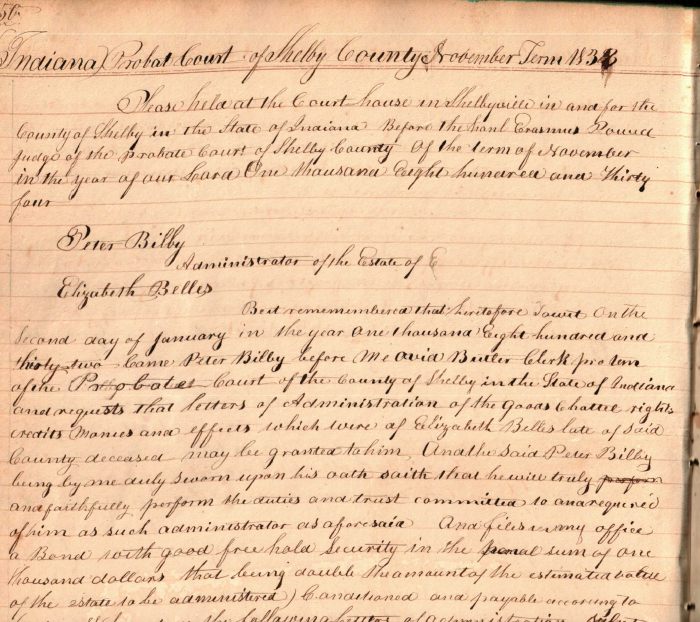 Indiana) Probat Court of Shelby County November Term 183
Please held at the Court house in Shelbyville in and for the
County of Shelby in the State of Indiana Before the honl Erasmus Powell
judge of the probate Court of Shelby County Of the term of November
in the year of our Loard One thousand Eight hundred and thirty
four
Peter Bilby
Administrator of the Estate of E
Elizabeth Belles
Beet remembered that heritofore Towit On the
Second day of January in the year one thousand Eight hundred and
thirty two Came Peter Bilby before Me avid Butler Clerk protem
of the Probate Court of the County of Shelby in the State of Indiana
and requests that letters of Administration of the goods Chattle rights
credits Monies and effects which were of Elizabeth Belles late of Said
County deceased may be granted to him And the said Peter Bilby
being by me duly sworn upon his oath saith that he will truly
and faithfully perform the duties and trust committed to and required
of him as such administrator as aforesaid And files in my office
a Bond with good free hold Security in the penal sum of one
thousand dollars that being double the amount of the estimated value
of the estate to be administered) Conditioned and payable according to
the following letters of administration